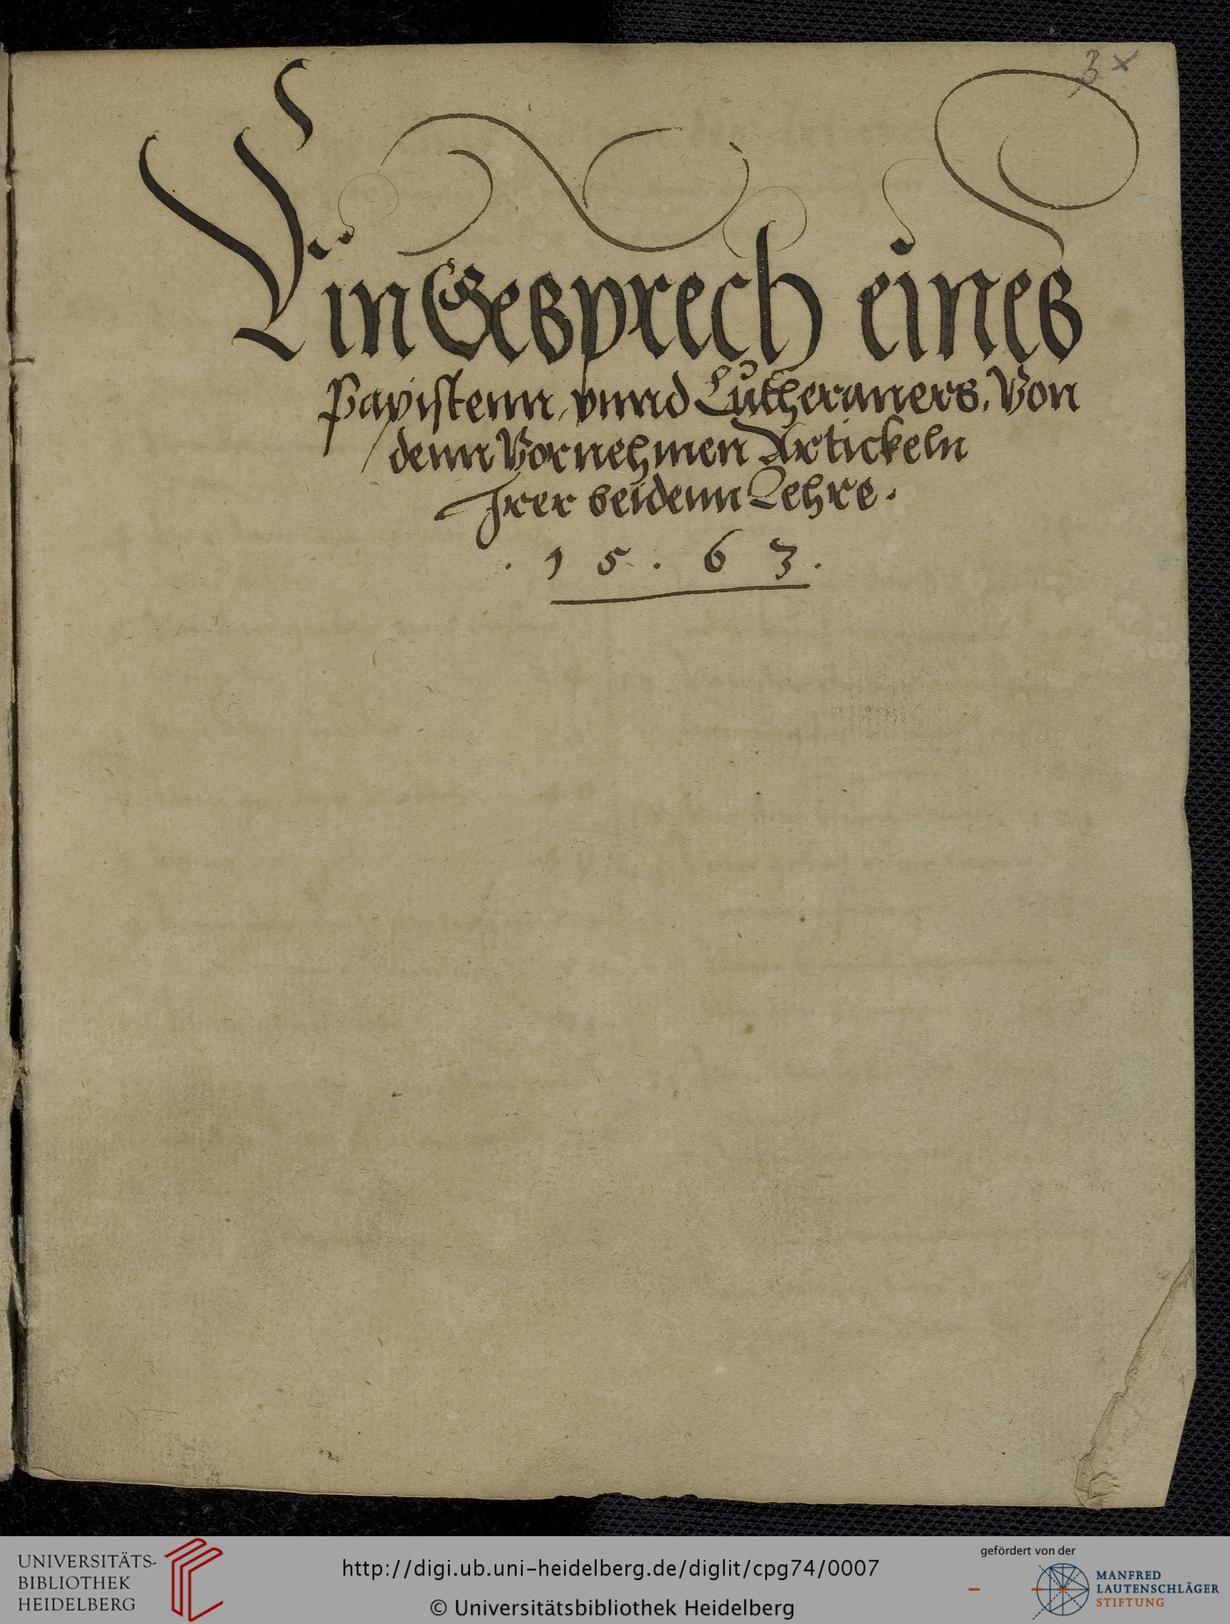 3x
Ein Gesprech eines
Papistenn, vnnd Lutheraners, Von
denn Vornehmen Artickeln
Irer beidenn Lehre.
. 1 5 . 6 3 .
UNIVERSITÄTS-
BIBLIOTHEK
HEIDELBERG
http://digi.ub.uni-heidelberg.de/diglit/cpg74/0007
© Universitätsbibliothek Heidelberg
gefördert von der
MANFRED
LAUTENSCHLÄGER
STIFTUNG